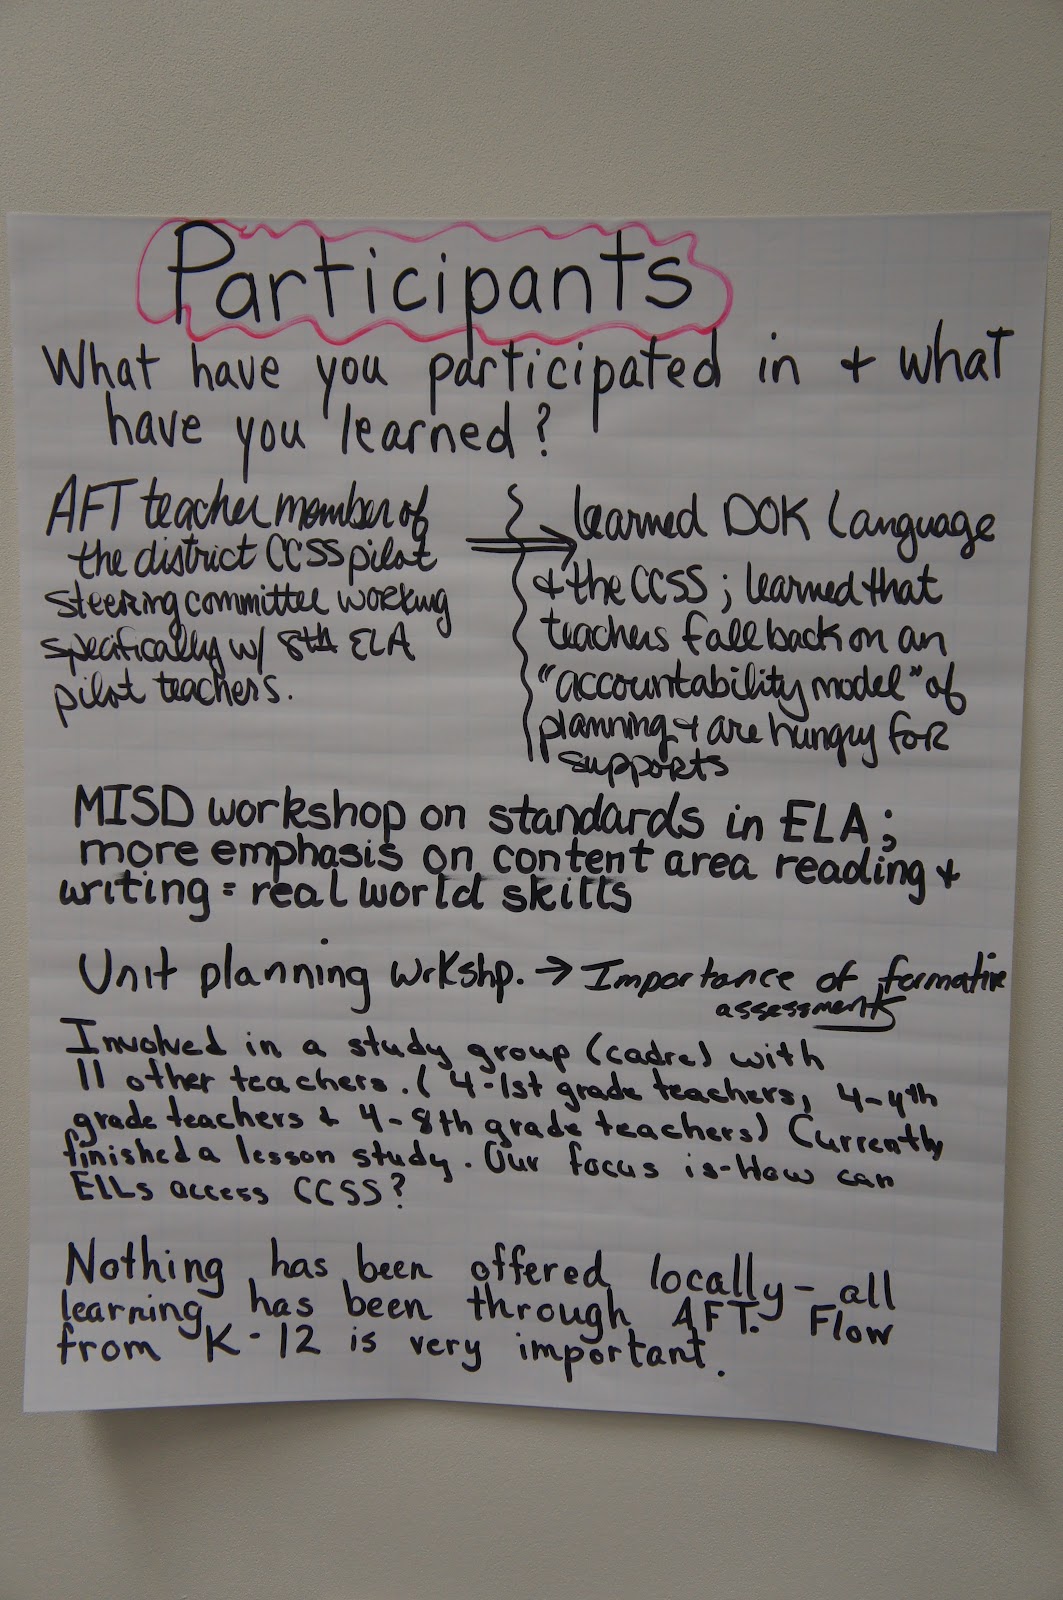 Participants
What have you participated in + what
have you learned?
AFT teacher member of
the district CCSS pilot
steering committee working
specifically w/ 8th ELA
pilot teachers.
learned DOK language
+ the CCSS; learned that
teachers fall back on an
"accountability model" of
planning + are hungry for
supports
MISD workshop on standards in ELA;
more emphasis on content area reading +
writing = real world skills
Unit planning wrkshp. → Importance of formative
assessments
Involved in a study group (cadre) with
11 other teachers. (4-1st grade teachers, 4-4th
grade teachers + 4-8th grade teachers) Currently
finished a lesson study. Our focus is-How can
ELLs access CCSS?
Nothing has been offered locally - all
learning has been through AFT. Flow
from K-12 is very important.